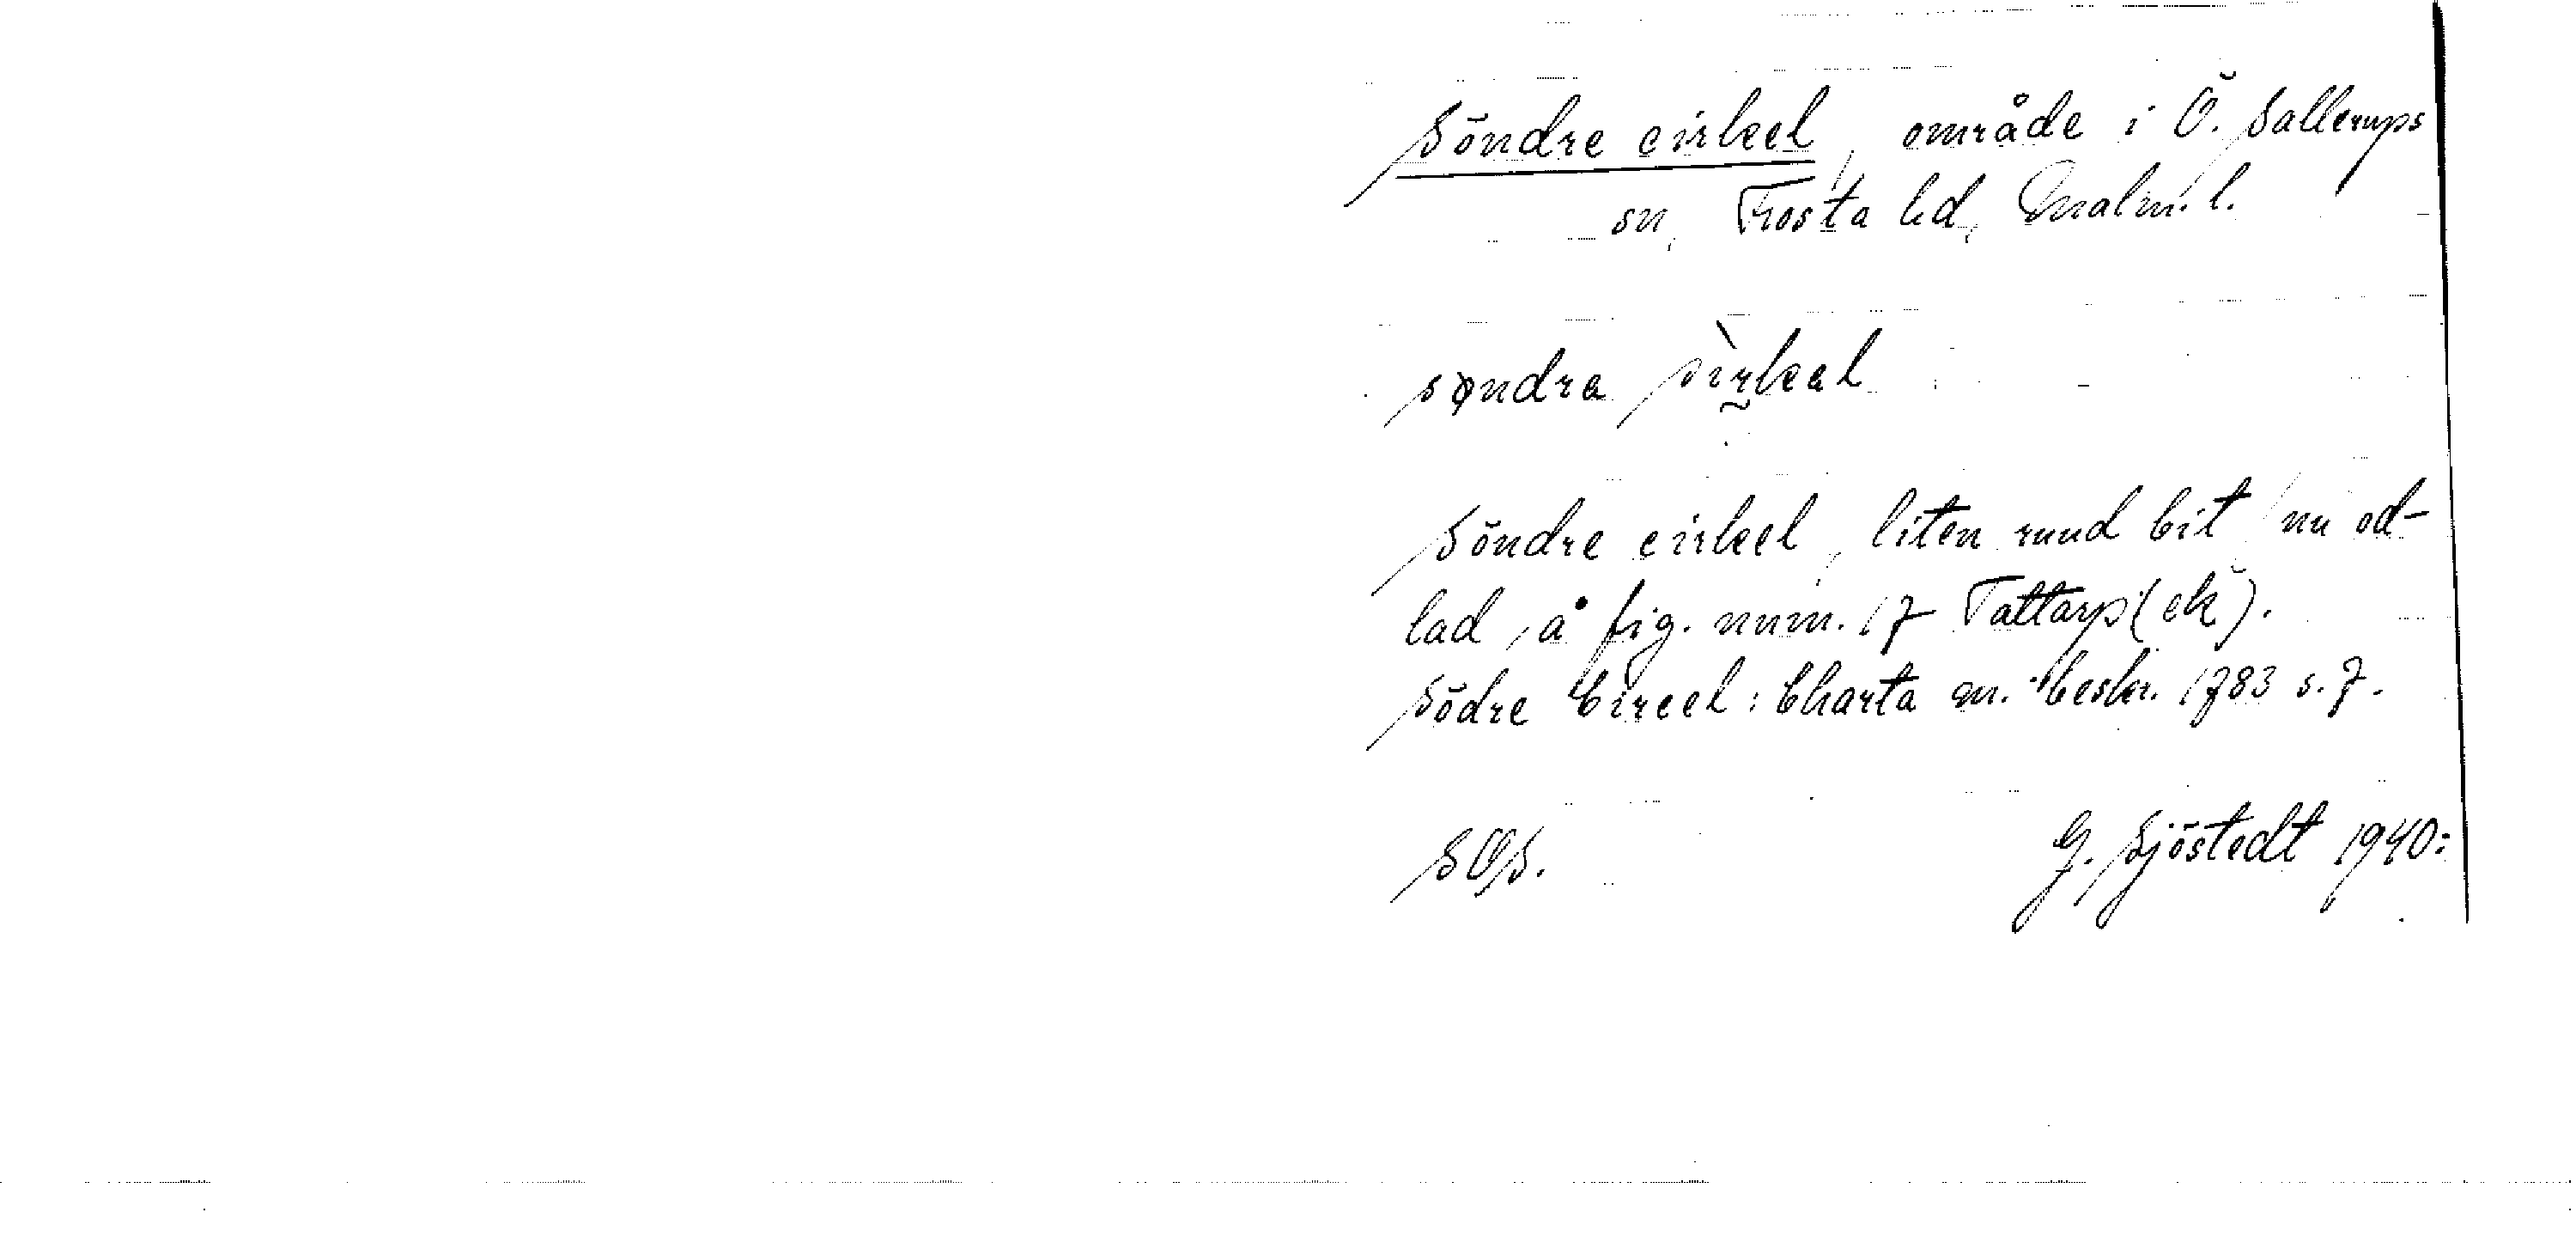 Söndre cirkel, område i Ö. Sallerups
sn, Frosta hd, Malm. l.
søndra sìrkal
Söndre cirkel, liten rund bit, nu od-
lad, å fig. num. 17 Tattarp (ek).
Södre Circel: Charta m. beskr. 1783 s. 7.
SOS. G. Sjöstedt 1940: